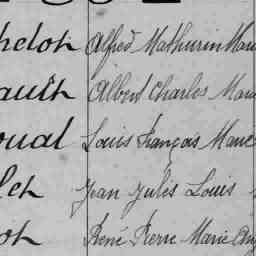 helot Alfred Mathurin Mari
ault Albert Charles Mari
oual Louis François Marie
let Jean Jules Louis
ot René Pierre Marie Ang